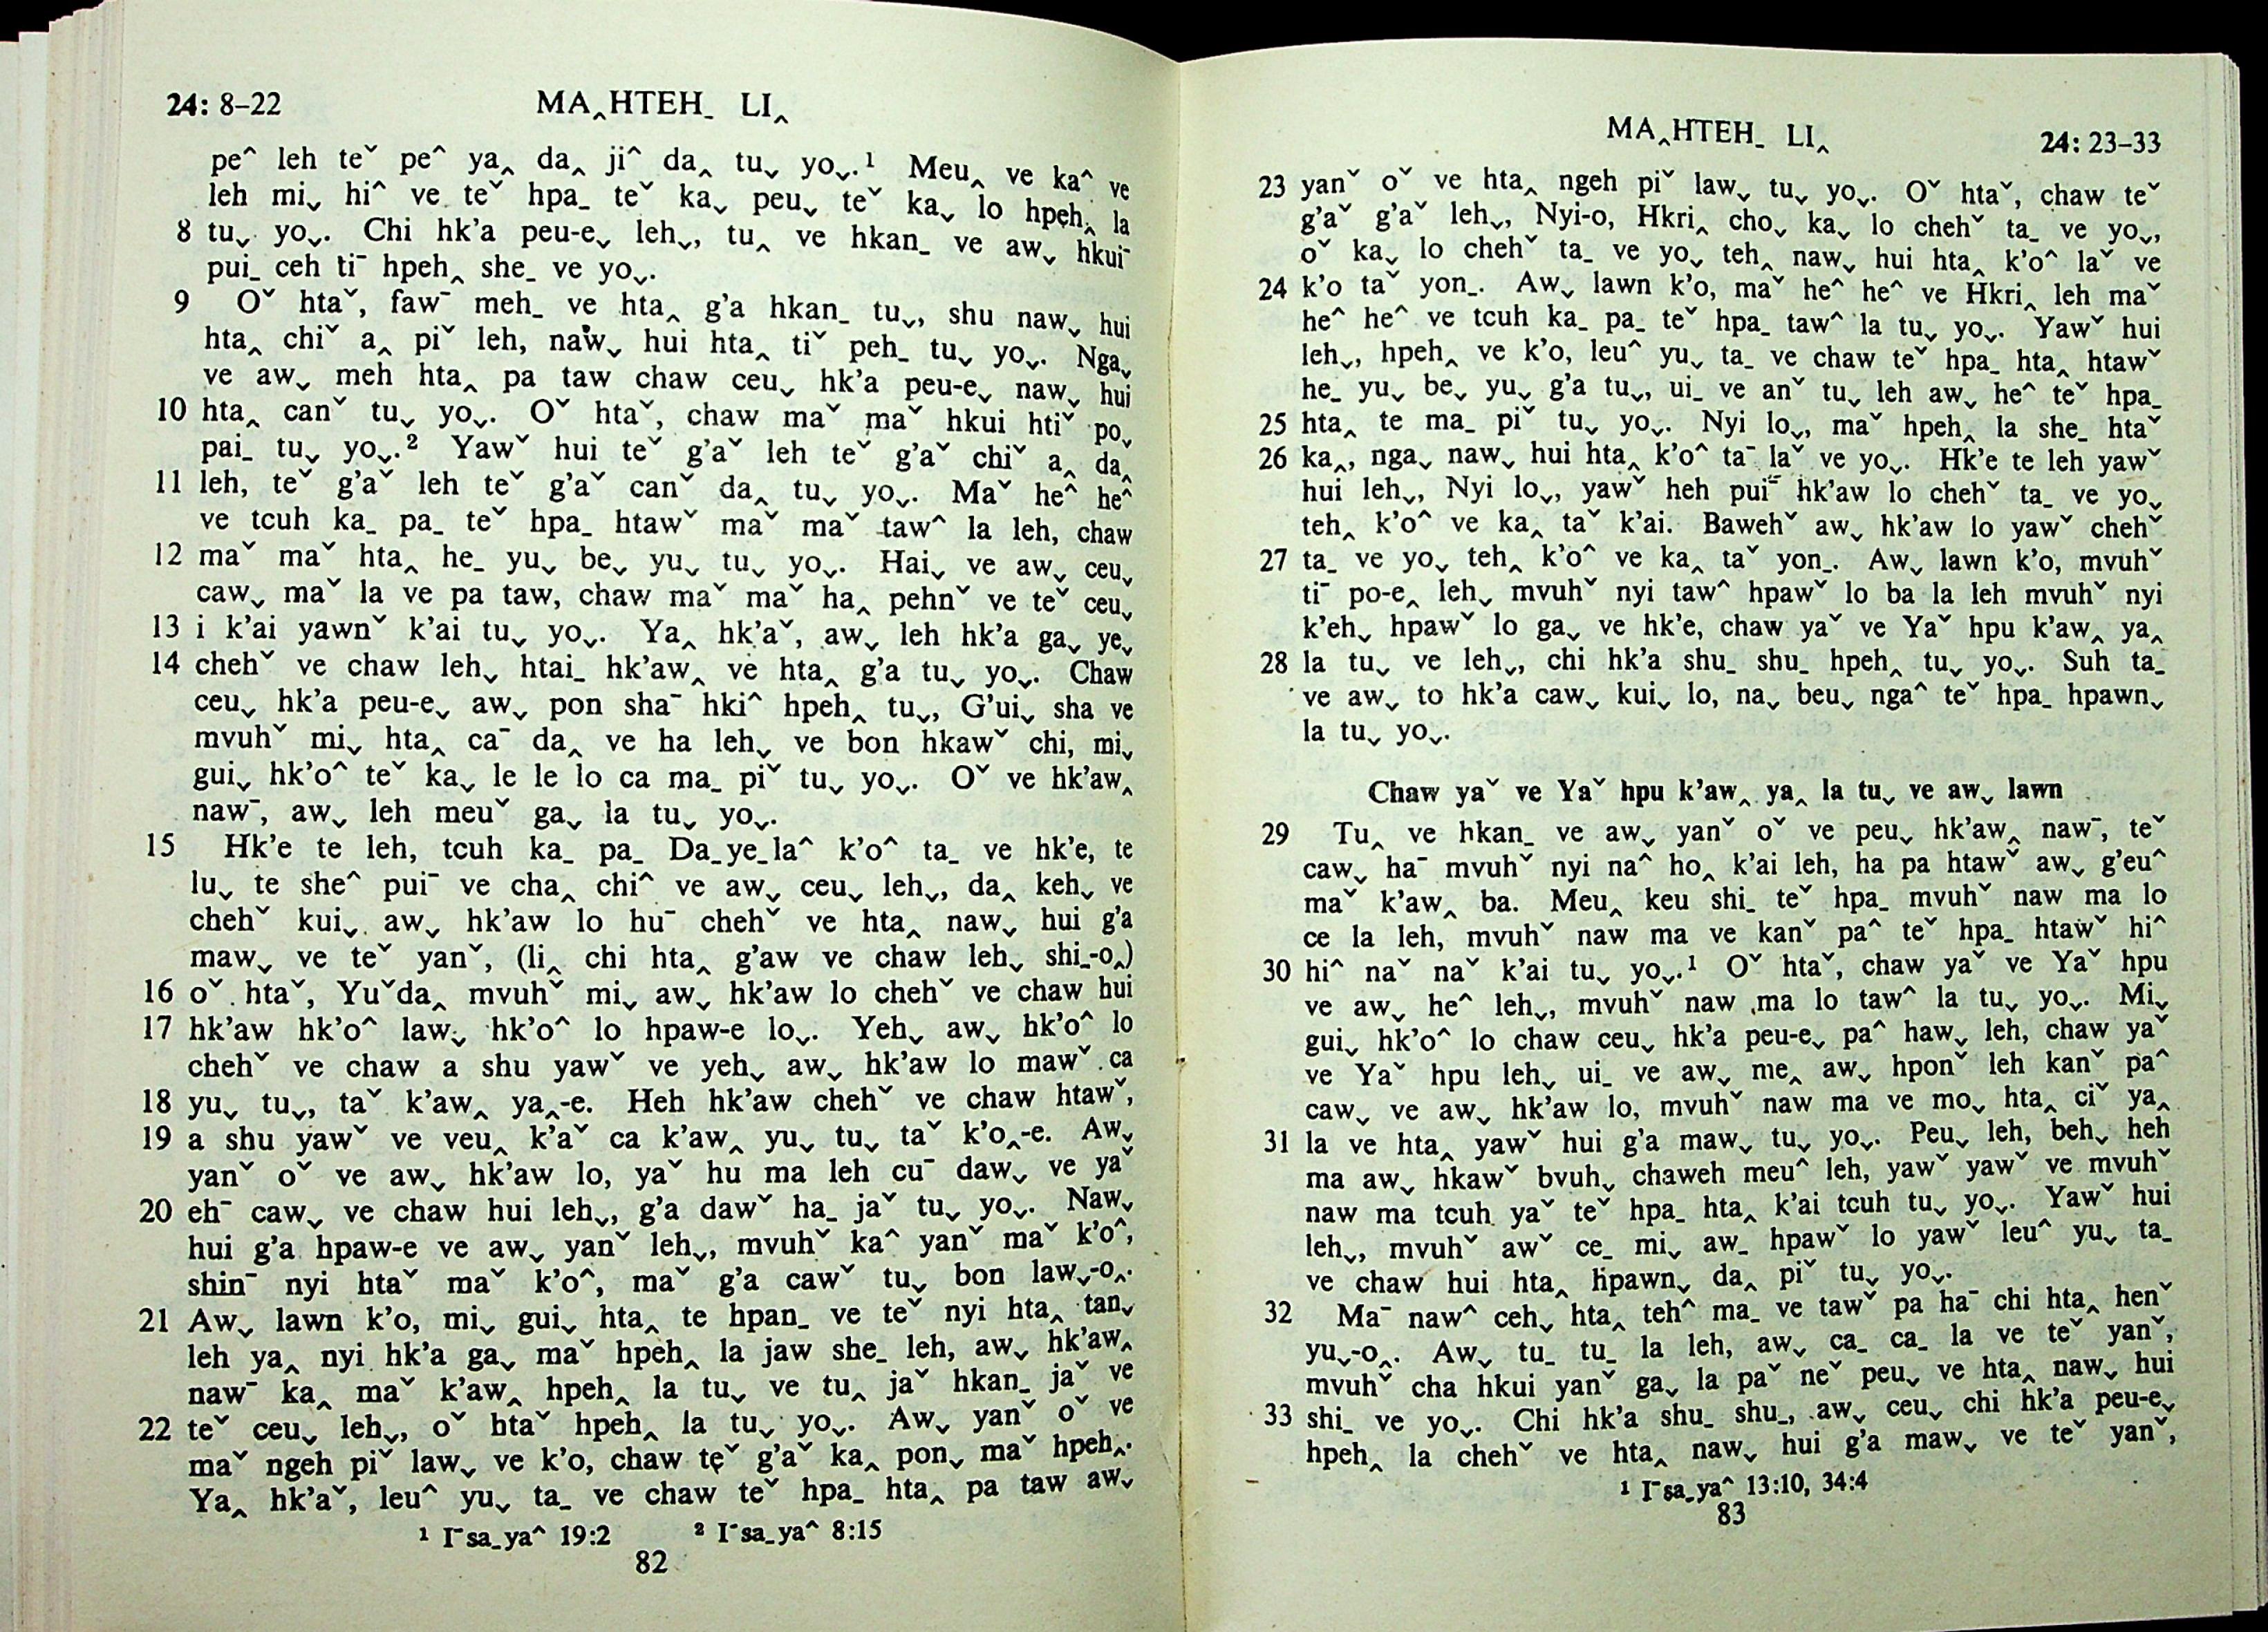 24: 8–22
MA‸HTEH_ LI‸
peˆ leh teˇ peˆ ya‸ da‸ jiˆ da‸ tuˬ yoˬ.¹ Meu‸ ve kaˆ ve
leh miˬ hiˆ ve teˇ hpa_ teˇ kaˬ peuˬ teˇ kaˬ lo hpeh‸ la
8 tuˬ yoˬ. Chi hk'a peu-eˬ lehˬ, tu‸ ve hkan_ ve awˬ hkuiˉ
pui_ ceh tiˉ hpeh‸ she_ ve yoˬ.
9 Oˇ htaˇ, fawˉ meh_ ve hta‸ g'a hkan_ tuˬ, shu nawˬ hui
hta‸ chiˇ a‸ piˇ leh, nawˬ hui hta‸ tiˇ peh_ tuˬ yoˬ. Ngaˬ
ve awˬ meh hta‸ pa taw chaw ceuˬ hk'a peu-eˬ nawˬ hui
10 hta‸ canˇ tuˬ yoˬ. Oˇ htaˇ, chaw maˇ maˇ hkui htiˇ poˬ
pai_ tuˬ yoˬ.² Yawˇ hui teˇ g'aˇ leh teˇ g'aˇ chiˇ a‸ da‸
11 leh, teˇ g'aˇ leh teˇ g'aˇ canˇ da‸ tuˬ yoˬ. Maˇ heˆ heˆ
ve tcuh ka_ pa_ teˇ hpa_ htawˇ maˇ maˇ tawˆ la leh, chaw
12 maˇ maˇ hta‸ he_ yuˬ beˬ yuˬ tuˬ yoˬ. Haiˬ ve awˬ ceuˬ
cawˬ maˇ la ve pa taw, chaw maˇ maˇ ha‸ pehnˇ ve teˇ ceuˬ
13 i k'ai yawnˇ k'ai tuˬ yoˬ. Ya‸ hk'aˇ, awˬ leh hk'a gaˬ yeˬ
14 chehˇ ve chaw lehˬ htai_ hk'aw‸ ve hta‸ g'a tuˬ yoˬ. Chaw
ceuˬ hk'a peu-eˬ awˬ pon shaˉ hkiˆ hpeh‸ tuˬ, G'uiˬ sha ve
mvuhˇ miˬ hta‸ caˉ da‸ ve ha lehˬ ve bon hkawˇ chi, miˬ
guiˬ hk'oˆ teˇ kaˬ le le lo ca ma_ piˇ tuˬ yoˬ. Oˇ ve hk'aw‸
nawˉ, awˬ leh meuˇ gaˬ la tuˬ yoˬ.
15 Hk'e te leh, tcuh ka_ pa_ Da_ye_laˆ k'oˆ ta_ ve hk'e, te
luˬ te sheˆ puiˉ ve cha‸ chiˆ ve awˬ ceuˬ lehˬ, da‸ kehˬ ve
chehˇ kuiˬ awˬ hk'aw lo huˉ chehˇ ve hta‸ nawˬ hui g'a
mawˬ ve teˇ yanˇ, (li‸ chi hta‸ g'aw ve chaw lehˬ shi_-o‸)
16 oˇ htaˇ, Yuˇda‸ mvuhˇ miˬ awˬ hk'aw lo chehˇ ve chaw hui
17 hk'aw hk'oˆ lawˬ hk'oˆ lo hpaw-e loˬ. Yehˬ awˬ hk'oˆ lo
chehˇ ve chaw a shu yawˇ ve yehˬ awˬ hk'aw lo mawˇ ca
18 yuˬ tuˬ, taˇ k'aw‸ ya‸-e. Heh hk'aw chehˇ ve chaw htawˇ,
19 a shu yawˇ ve veu‸ k'aˇ ca k'aw‸ yuˬ tuˬ taˇ k'o‸-e. Awˬ
yanˇ oˇ ve awˬ hk'aw lo, yaˇ hu ma leh cuˉ dawˬ ve yaˇ
20 ehˉ cawˬ ve chaw hui lehˬ, g'a dawˇ ha_ jaˇ tuˬ yoˬ. Nawˬ
hui g'a hpaw-e ve awˬ yanˇ lehˬ, mvuhˇ kaˆ yanˇ maˇ k'oˆ,
shinˉ nyi htaˇ maˇ k'oˆ, maˇ g'a cawˇ tuˬ bon lawˬ-o‸.
21 Awˬ lawn k'o, miˬ guiˬ hta‸ te hpan_ ve teˇ nyi hta‸ tanˬ
leh ya‸ nyi hk'a gaˬ maˇ hpeh‸ la jaw she_ leh, awˬ hk'aw‸
nawˉ ka‸ maˇ k'aw‸ hpeh‸ la tuˬ ve tu‸ jaˇ hkan_ jaˇ ve
22 teˇ ceuˬ lehˬ, oˇ htaˇ hpeh‸ la tuˬ yoˬ. Awˬ yanˇ oˇ ve
maˇ ngeh piˇ lawˬ ve k'o, chaw teˇ g'aˇ ka‸ ponˬ maˇ hpeh‸.
Ya‸ hk'aˇ, leuˆ yuˬ ta_ ve chaw teˇ hpa_ hta‸ pa taw awˬ
¹ Iˉsa_yaˆ 19:2 ² Iˉsa_yaˆ 8:15
82
MA‸HTEH_ LI‸
24: 23–33
23 yanˇ oˇ ve hta‸ ngeh piˇ lawˬ tuˬ yoˬ. Oˇ htaˇ, chaw teˇ
g'aˇ g'aˇ lehˬ, Nyi-o, Hkri‸ choˬ kaˬ lo chehˇ ta_ ve yoˬ,
oˇ kaˬ lo chehˇ ta_ ve yoˬ teh‸ nawˬ hui hta‸ k'oˆ laˇ ve
24 k'o taˇ yon_. Awˬ lawn k'o, maˇ heˆ heˆ ve Hkri‸ leh maˇ
heˆ heˆ ve tcuh ka_ pa_ teˇ hpa_ tawˆ la tuˬ yoˬ. Yawˇ hui
lehˬ, hpeh‸ ve k'o, leuˆ yuˬ ta_ ve chaw teˇ hpa_ hta‸ htawˇ
he_ yuˬ beˬ yuˬ g'a tuˬ, ui_ ve anˇ tuˬ leh awˬ heˆ teˇ hpa_
25 hta‸ te ma_ piˇ tuˬ yoˬ. Nyi loˬ, maˇ hpeh‸ la she_ htaˇ
26 ka‸, ngaˬ nawˬ hui hta‸ k'oˆ taˉ laˇ ve yoˬ. Hk'e te leh yawˇ
hui lehˬ, Nyi loˬ, yawˇ heh puiˉ hk'aw lo chehˇ ta_ ve yoˬ
teh‸ k'oˆ ve ka‸ taˇ k'ai. Bawehˇ awˬ hk'aw lo yawˇ chehˇ
27 ta_ ve yoˬ teh‸ k'oˆ ve ka‸ taˇ yon_. Awˬ lawn k'o, mvuhˇ
tiˉ po-e‸ lehˬ mvuhˇ nyi tawˆ hpawˇ lo ba la leh mvuhˇ nyi
k'ehˬ hpawˇ lo gaˬ ve hk'e, chaw yaˇ ve Yaˇ hpu k'aw‸ ya‸
28 la tuˬ ve lehˬ, chi hk'a shu_ shu_ hpeh‸ tuˬ yoˬ. Suh ta_
ve awˬ to hk'a cawˬ kuiˬ lo, naˬ beuˬ ngaˆ teˇ hpa_ hpawnˬ
la tuˬ yoˬ.
Chaw yaˇ ve Yaˇ hpu k'aw‸ ya‸ la tuˬ ve awˬ lawn
29 Tu‸ ve hkan_ ve awˬ yanˇ oˇ ve peuˬ hk'aw‸ nawˉ, teˇ
cawˬ haˉ mvuhˇ nyi naˆ ho‸ k'ai leh, ha pa htawˇ awˬ g'euˆ
maˇ k'aw‸ ba. Meu‸ keu shi_ teˇ hpa_ mvuhˇ naw ma lo
ce la leh, mvuhˇ naw ma ve kanˇ paˆ teˇ hpa_ htawˇ hiˆ
30 hiˆ naˇ naˇ k'ai tuˬ yoˬ.¹ Oˇ htaˇ, chaw yaˇ ve Yaˇ hpu
ve awˬ heˆ lehˬ, mvuhˇ naw ma lo tawˆ la tuˬ yoˬ. Miˬ
guiˬ hk'oˆ lo chaw ceuˬ hk'a peu-eˬ paˆ hawˬ leh, chaw yaˇ
ve Yaˇ hpu lehˬ ui_ ve awˬ me‸ awˬ hponˇ leh kanˇ paˆ
cawˬ ve awˬ hk'aw lo, mvuhˇ naw ma ve moˬ hta‸ ciˇ ya‸
31 la ve hta‸ yawˇ hui g'a mawˬ tuˬ yoˬ. Peuˬ leh, behˬ heh
ma awˬ hkawˇ bvuhˬ chaweh meuˆ leh, yawˇ yawˇ ve mvuhˇ
naw ma tcuh yaˇ teˇ hpa_ hta‸ k'ai tcuh tuˬ yoˬ. Yawˇ hui
lehˬ, mvuhˇ awˇ ce_ miˬ aw_ hpawˇ lo yawˇ leuˆ yuˬ ta_
ve chaw hui hta‸ hpawnˬ da‸ piˇ tuˬ yoˬ.
32 Maˉ nawˆ cehˬ hta‸ tehˆ ma_ ve tawˇ pa haˉ chi hta‸ henˇ
yuˬ-o‸. Awˬ tu_ tu_ la leh, awˬ ca_ ca_ la ve teˇ yanˇ,
mvuhˇ cha hkui yanˇ gaˬ la paˇ neˇ peuˬ ve hta‸ nawˬ hui
33 shi_ ve yoˬ. Chi hk'a shu_ shu_, awˬ ceuˬ chi hk'a peu-eˬ
hpeh‸ la chehˇ ve hta‸ nawˬ hui g'a mawˬ ve teˇ yanˇ,
¹ Iˉsa_yaˆ 13:10, 34:4
83